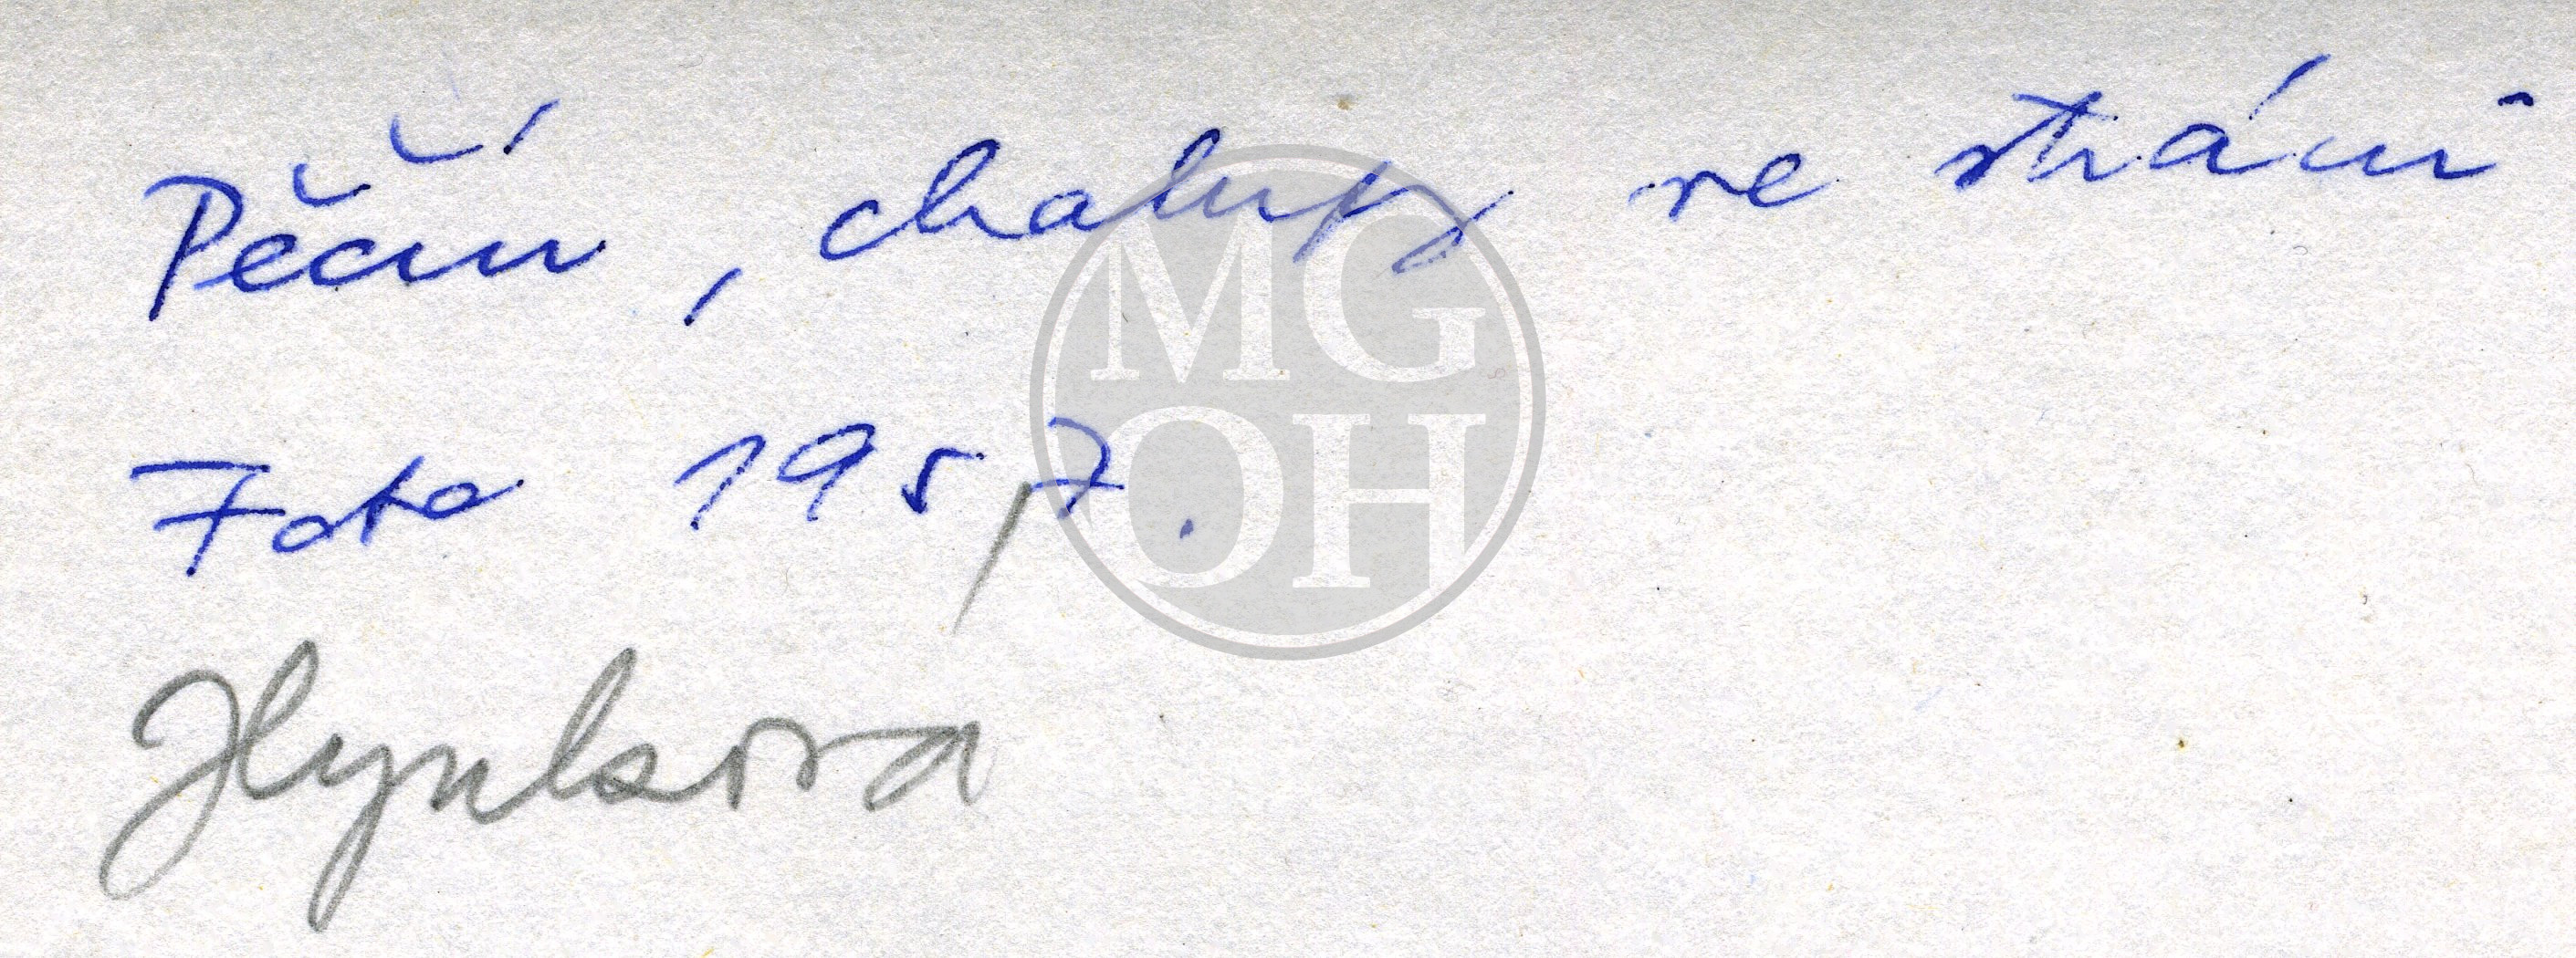 Pěčín, chalupy ve stráni
Foto 1957.
Hynková
MG
OH